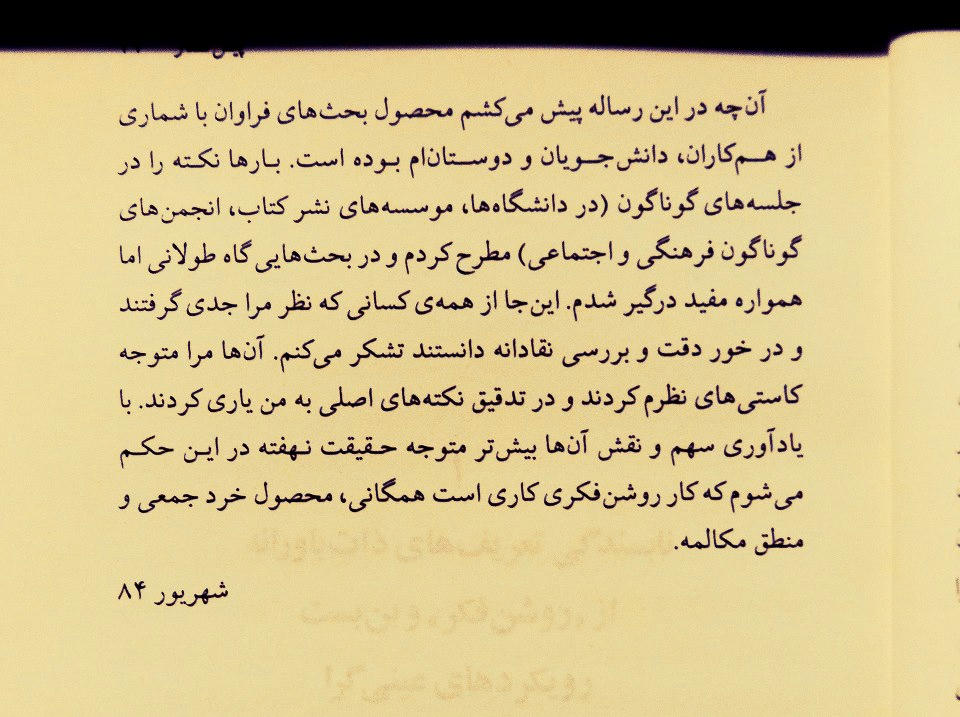 آن‌چه در این رساله پیش می‌کشم محصول بحث‌های فراوان با شماری
از هم‌کاران، دانش‌جویان و دوستان‌ام بوده است. بارها نکته را در
جلسه‌های گوناگون (در دانشگاه‌ها، موسسه‌های نشر کتاب، انجمن‌های
گوناگون فرهنگی و اجتماعی) مطرح کردم و در بحث‌هایی گاه طولانی اما
همواره مفید درگیر شدم. این‌جا از همه‌ی کسانی که نظر مرا جدی گرفتند
و در خور دقت و بررسی نقادانه دانستند تشکر می‌کنم. آن‌ها مرا متوجه
کاستی‌های نظرم کردند و در تدقیق نکته‌های اصلی به من یاری کردند. با
یادآوری سهم و نقش آن‌ها بیش‌تر متوجه حقیقت نهفته در این حکم
می‌شوم که کار روشن‌فکری کاری است همگانی، محصول خرد جمعی و
منطق مکالمه.
شهریور ۸۴
نابسندگی تعریف‌های ذات‌باورانه
از «روشن‌فکر» و بن‌بست
رویکردهای عینی‌گرا